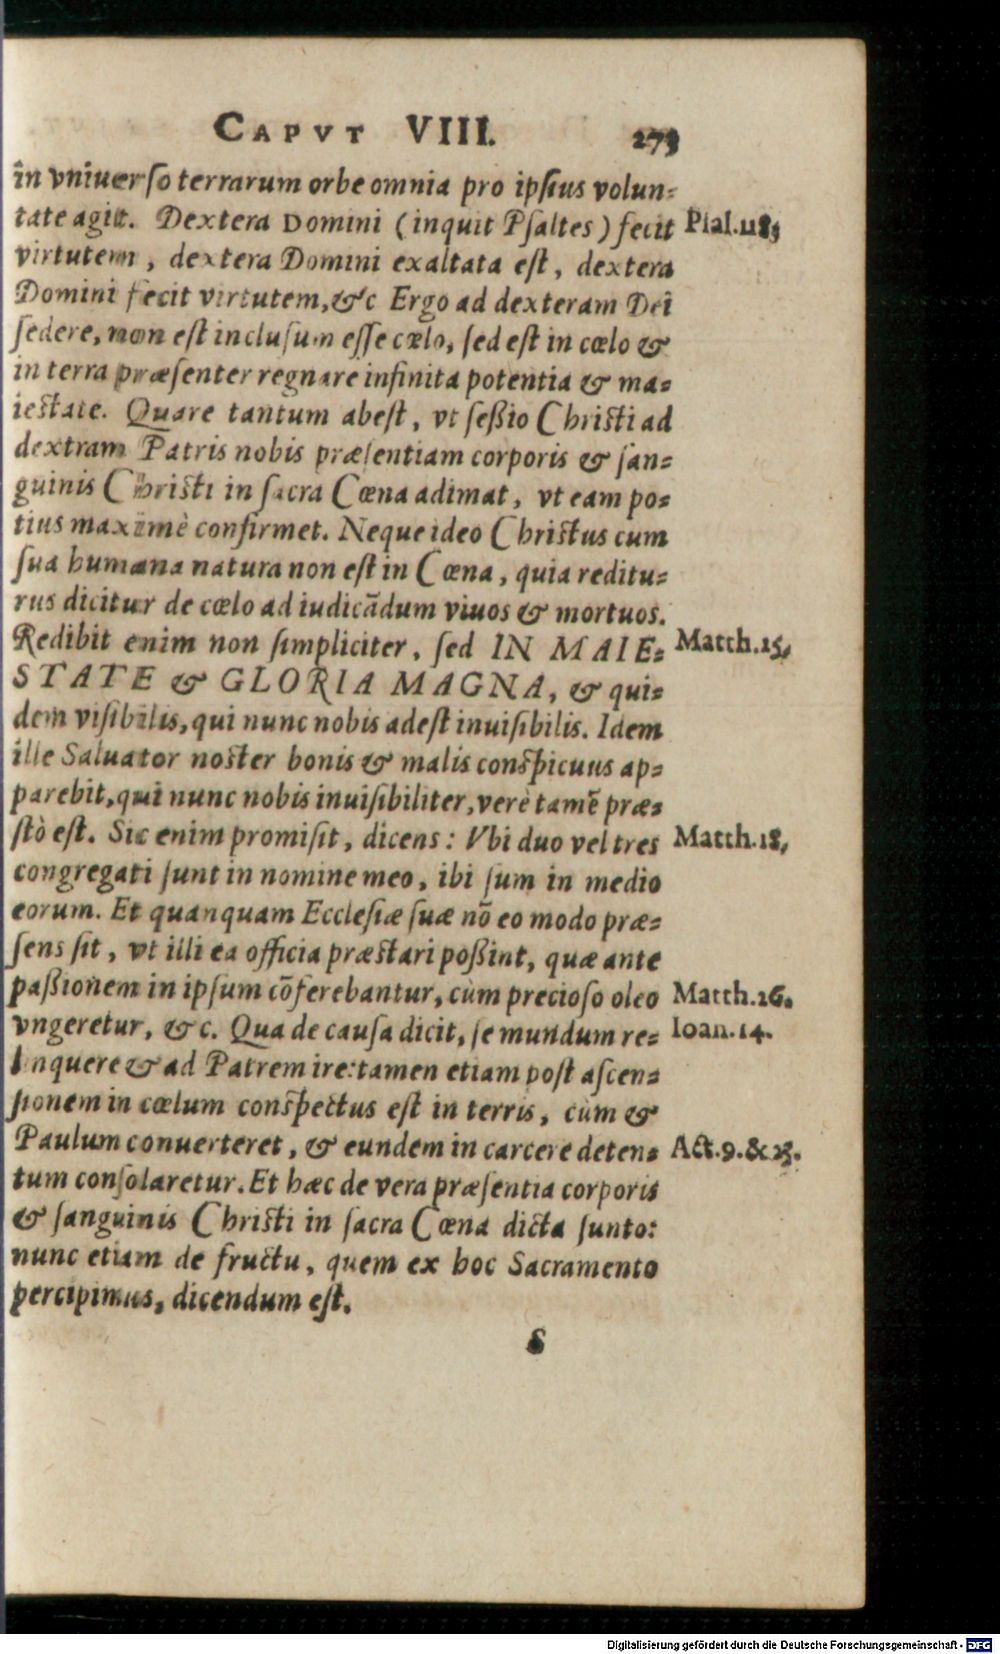 CAPVT VIII. 273
in vniuerso terrarum orbe omnia pro ipsius volun-
tate agit. Dextera Domini (inquit Psaltes) fecit Psal.118.
virtutem, dextera Domini exaltata est, dextera
Domini fecit virtutem, &c Ergo ad dexteram Dei
sedere, non est inclusum esse cœlo, sed est in cœlo &
in terra præsenter regnare infinita potentia & ma-
iestate. Quare tantum abest, vt seßio Christi ad
dextram Patris nobis præsentiam corporis & san-
guinis Christi in sacra Cœna adimat, vt eam po-
tius maximè confirmet. Neque ideo Christus cum
sua humana natura non est in Cœna, quia reditu-
rus dicitur de cœlo ad iudicãdum viuos & mortuos.
Redibit enim non simpliciter, sed IN MAIE- Matth.25.
STATE & GLORIA MAGNA, & qui-
dem visibilis, qui nunc nobis adest inuisibilis. Idem
ille Saluator noster bonis & malis conspicuus ap-
parebit, qui nunc nobis inuisibiliter, verè tamẽ præ-
stò est. Sic enim promisit, dicens: Vbi duo vel tres Matth.18.
congregati sunt in nomine meo, ibi sum in medio
eorum. Et quanquam Ecclesiæ suæ nõ eo modo præ-
sens sit, vt illi ea officia præstari poßint, quæ ante
paßionem in ipsum cõferebantur, cùm precioso oleo Matth.26.
vngeretur, &c. Qua de causa dicit, se mundum re- Ioan.14.
linquere & ad Patrem ire: tamen etiam post ascen-
sionem in cœlum conspectus est in terris, cùm &
Paulum conuerteret, & eundem in carcere deten- Act.9.& 23.
tum consolaretur. Et hæc de vera præsentia corporis
& sanguinis Christi in sacra Cœna dicta sunto:
nunc etiam de fructu, quem ex hoc Sacramento
percipimus, dicendum est.
S
Digitalisierung gefördert durch die Deutsche Forschungsgemeinschaft - DFG